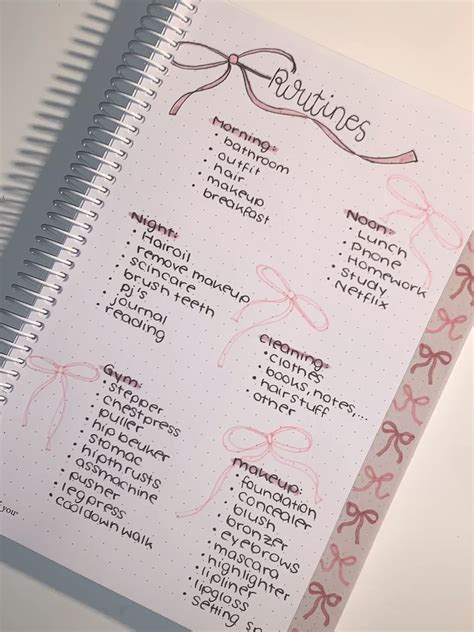 Routines
Morning:
• bathroom
• outfit
• hair
• makeup
• breakfast
Noon:
• Lunch
• Phone
• Homework
• study
Netflix
Night:
• Hairoil
• remove makeup
• scincare
• brush teeth
• pj's
• journal
reading
cleaning:
• clothes
• books, notes,...
• hairstuff
• other
Gym:
• stepper
• chestpress
• puller
• hip beuker
• stomac
• hipthrusts
• assmachine
• pusher
• legpress
• cooldownwalk
makeup:
• foundation
• concealer
• blush
• bronzer
• eyebrows
• mascara
• highlighter
• lipliner
• lipgloss
• setting
you